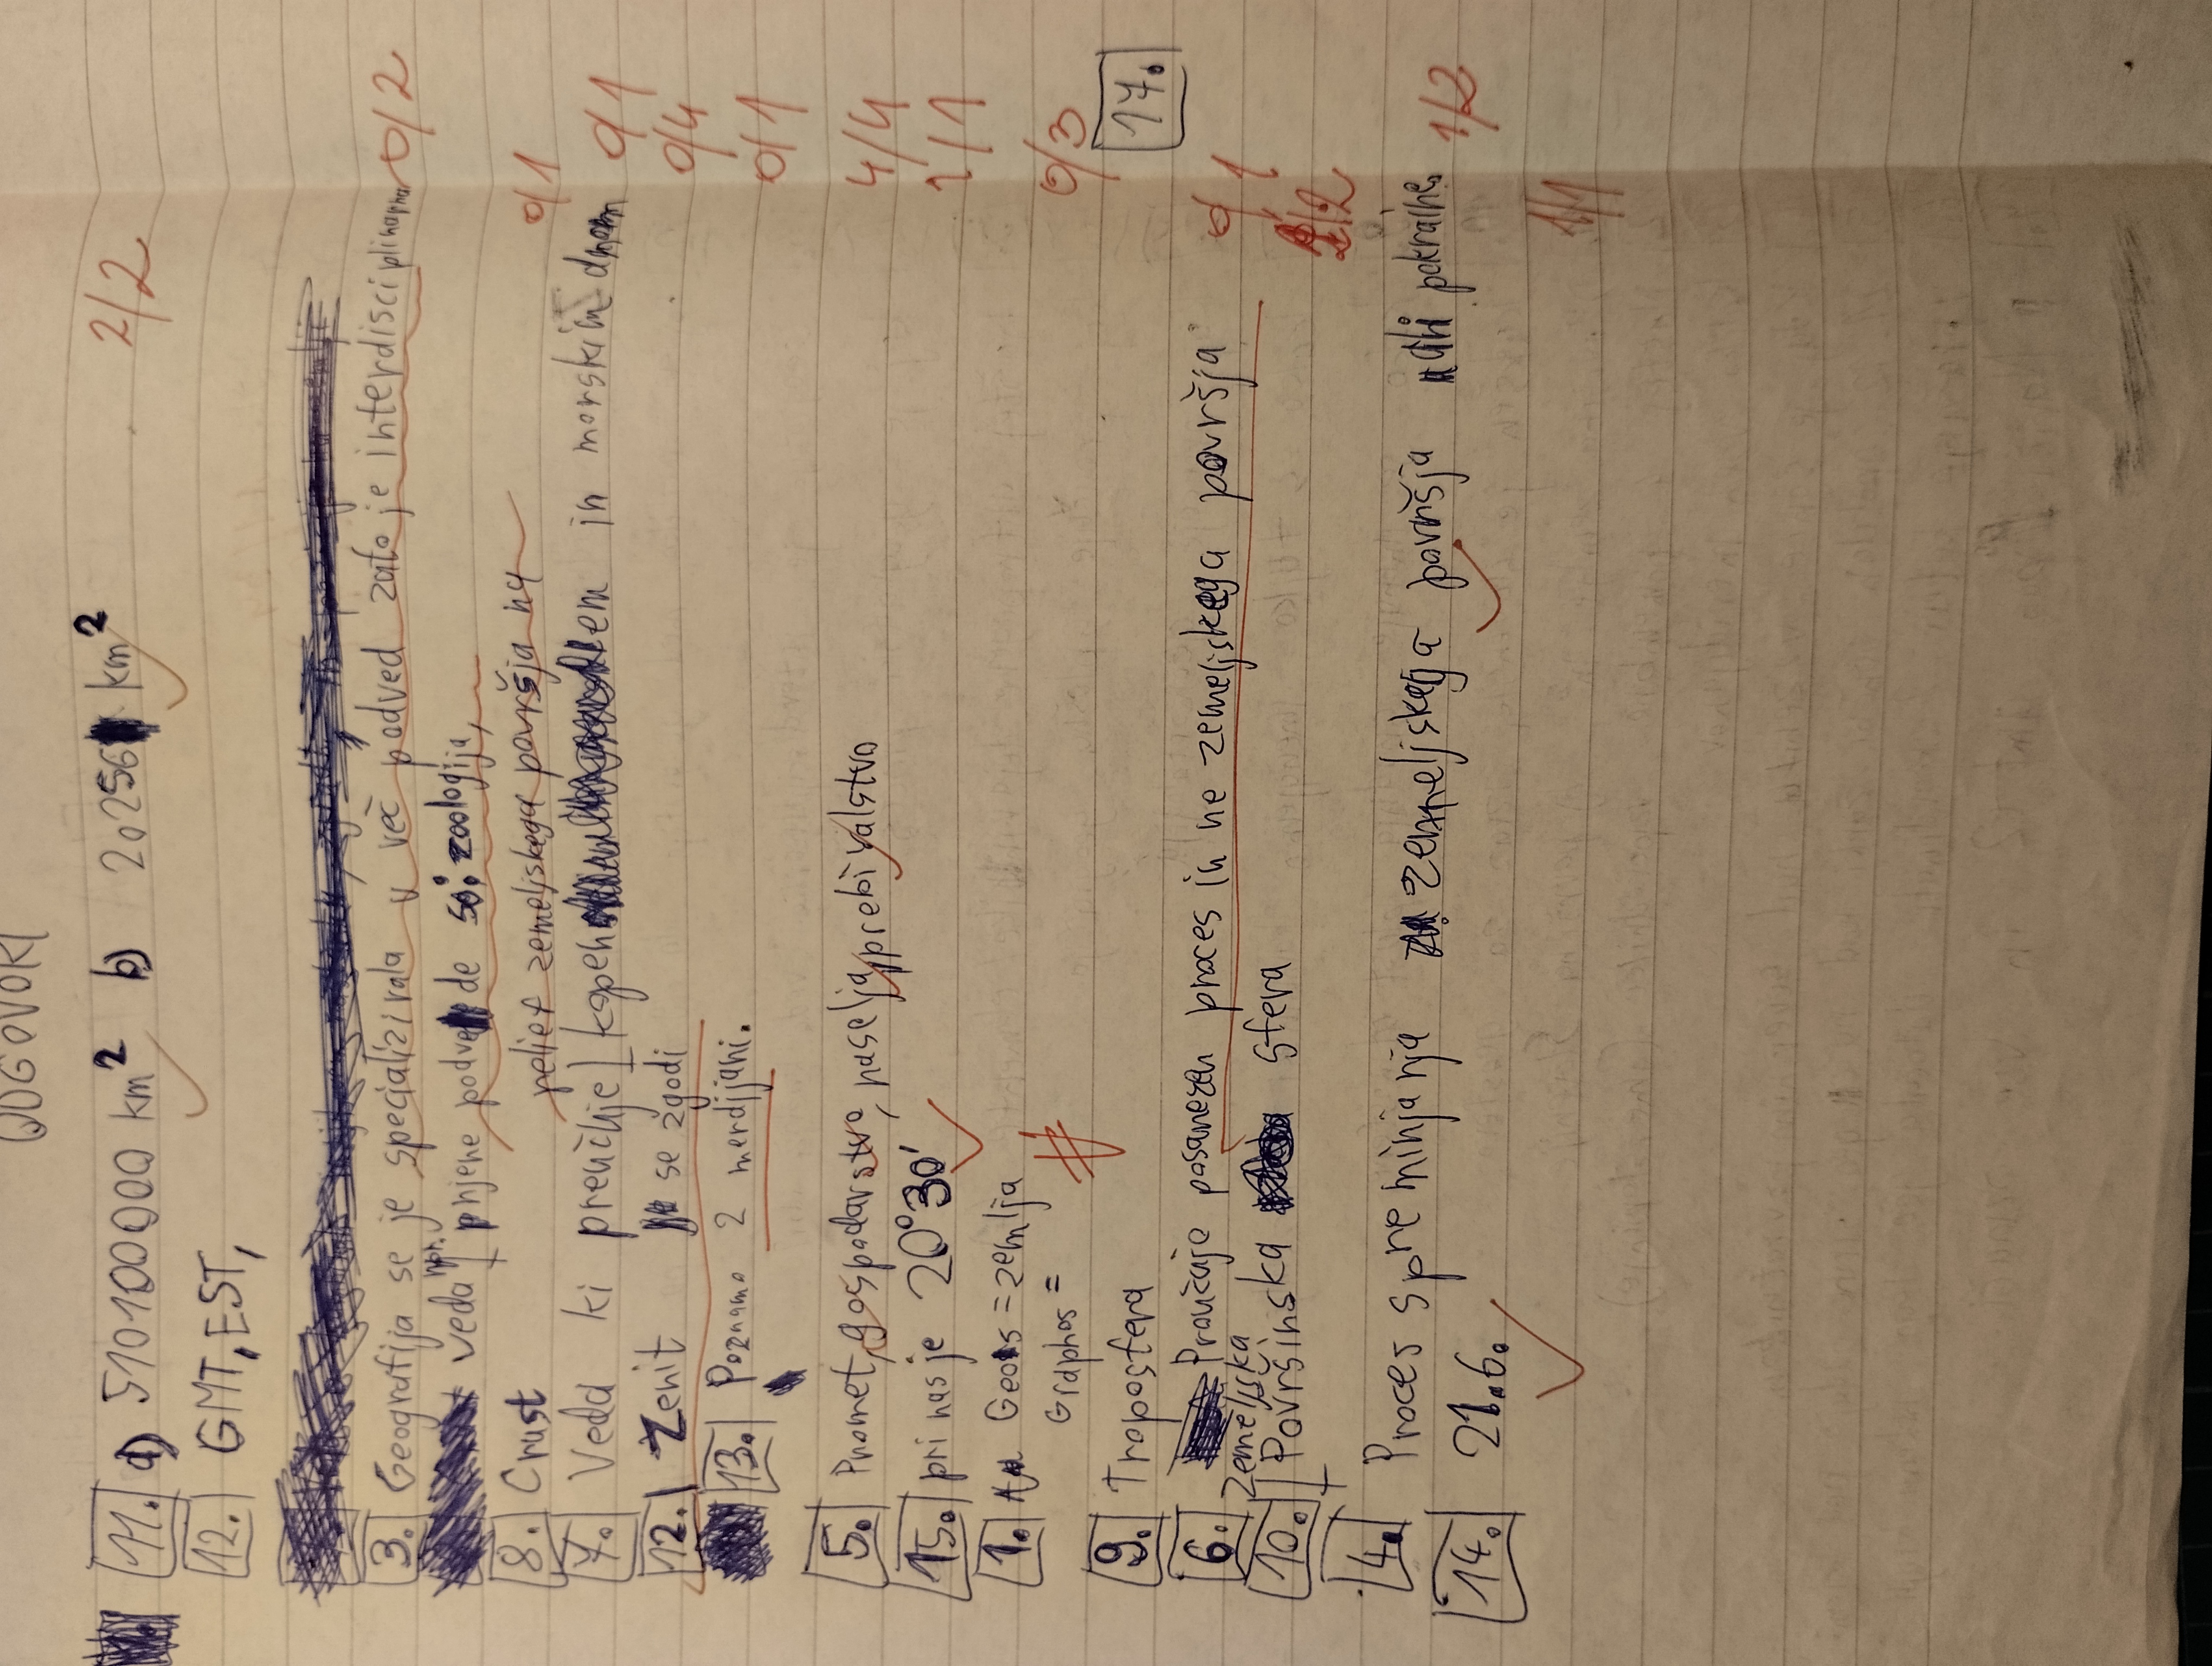 ODGOVORI
11. a) 510100000 km² b) 20256 km² 2/2
12. GMT, EST,
3. Geografija se je specializirala v več podved zato je interdisciplinarna 0/2
veda npr. njene podvede so: zoologija,
8. Crust 0/1
relief zemeljskega površja na
7. Veda ki preučuje kopenem in morskim dnom 0/1
12. Zenit se zgodi 0/4
13. Poznamo 2 merdijani. 0/1
5. Promet, gospodarstvo, naselja, prebivalstvo 4/4
15. pri nas je 20°30' 1/1
1. Geos = zemlja
Graphos = 0/3
9. Troposfera 17.
6. Proučuje posamezen proces in ne zemeljskega površja 0/1
Zemeljska
10. Površinska sfera /2
4. Proces spreminjanja zemeljskega površja ali pokrajine. 1/2
14. 21.6. 1/1